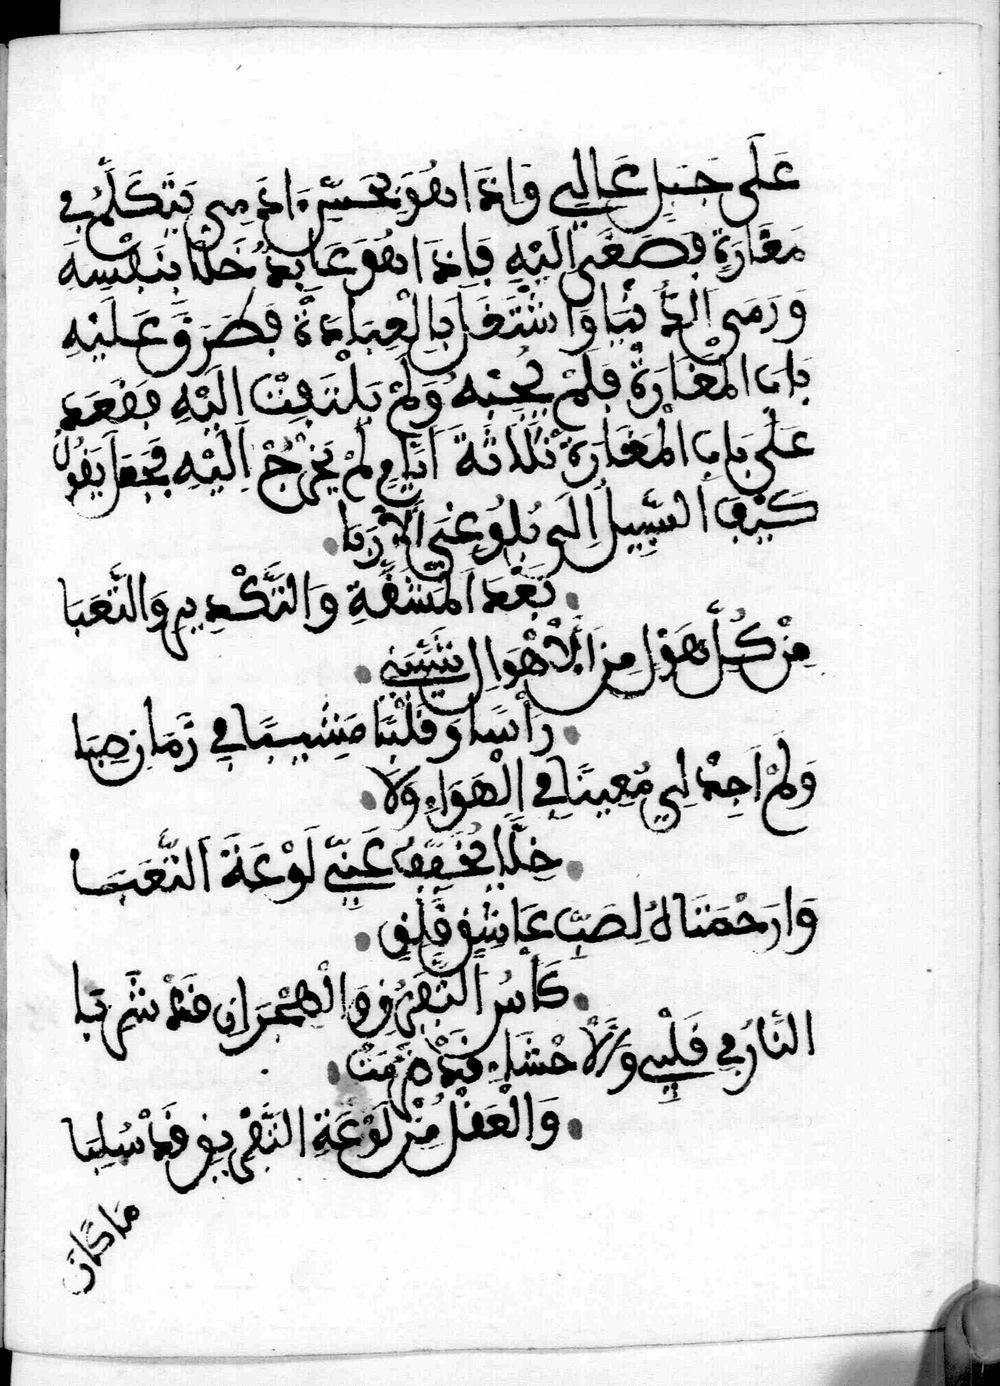 عَلَى جَبَلٍ عَالِي وَإِذَا هُوَ بِحَسِّ ءَادَمِي يَتَكَلَّمُ فِي
مَغَارَةٍ فَصَغَى اِلَيْهِ فَإِذَا هُوَ عَابِدٌ خَلَا بِنَفْسِهِ
وَرَمَى الدُّنْيَا وَاشْتَغَلَ بِالْعِبَادَةِ فَطَرَقَ عَلَيْهِ
بَابَ الْمَغَارَةِ فَلَمْ يُجِبْهُ وَلَمْ يَلْتَفِتْ اِلَيْهِ فَقَعَدَ
عَلَى بَابِ الْمَغَارَةِ ثَلَاثَةَ اَيَّامٍ لَمْ يَخْرُجْ اِلَيْهِ فَجَعَلَ يَقُولُ
كَيْفَ السَّبِيلُ اِلَى بُلُوغِي الْأَرَبَا
بَعْدَ الْمَشَقَّةِ وَالتَّكْدِيرِ وَالتَّعَبَا
مِنْ كُلِّ هَوْلٍ مِنَ الْأَهْوَالِ شَيَّبَنِي
رَأْسًا وَقَلْبًا مَشِيبًا فِي زَمَانِ صِبَا
وَلَمْ اَجِدْ لِي مُعِينًا فِي الْهَوَاءِ وَلَا
خِلًّا يُخَفِّفُ عَنِّي لَوْعَةَ التَّعَبَا
وَارَحْمَتَاهُ لِصَبٍّ عَاشِقٍ قَلِقٍ
كَأْسَ التَّفَرُّقِ وَالْهِجْرَانِ قَدْ شَرِبَا
النَّارُ فِي قَلْبِي وَالْأَحْشَاءِ قَدْ ضُرِمَتْ
وَالْعَقْلُ مِنْ لَوْعَةِ التَّفْرِيقِ قَدْ سُلِبَا
مَا كَانَ